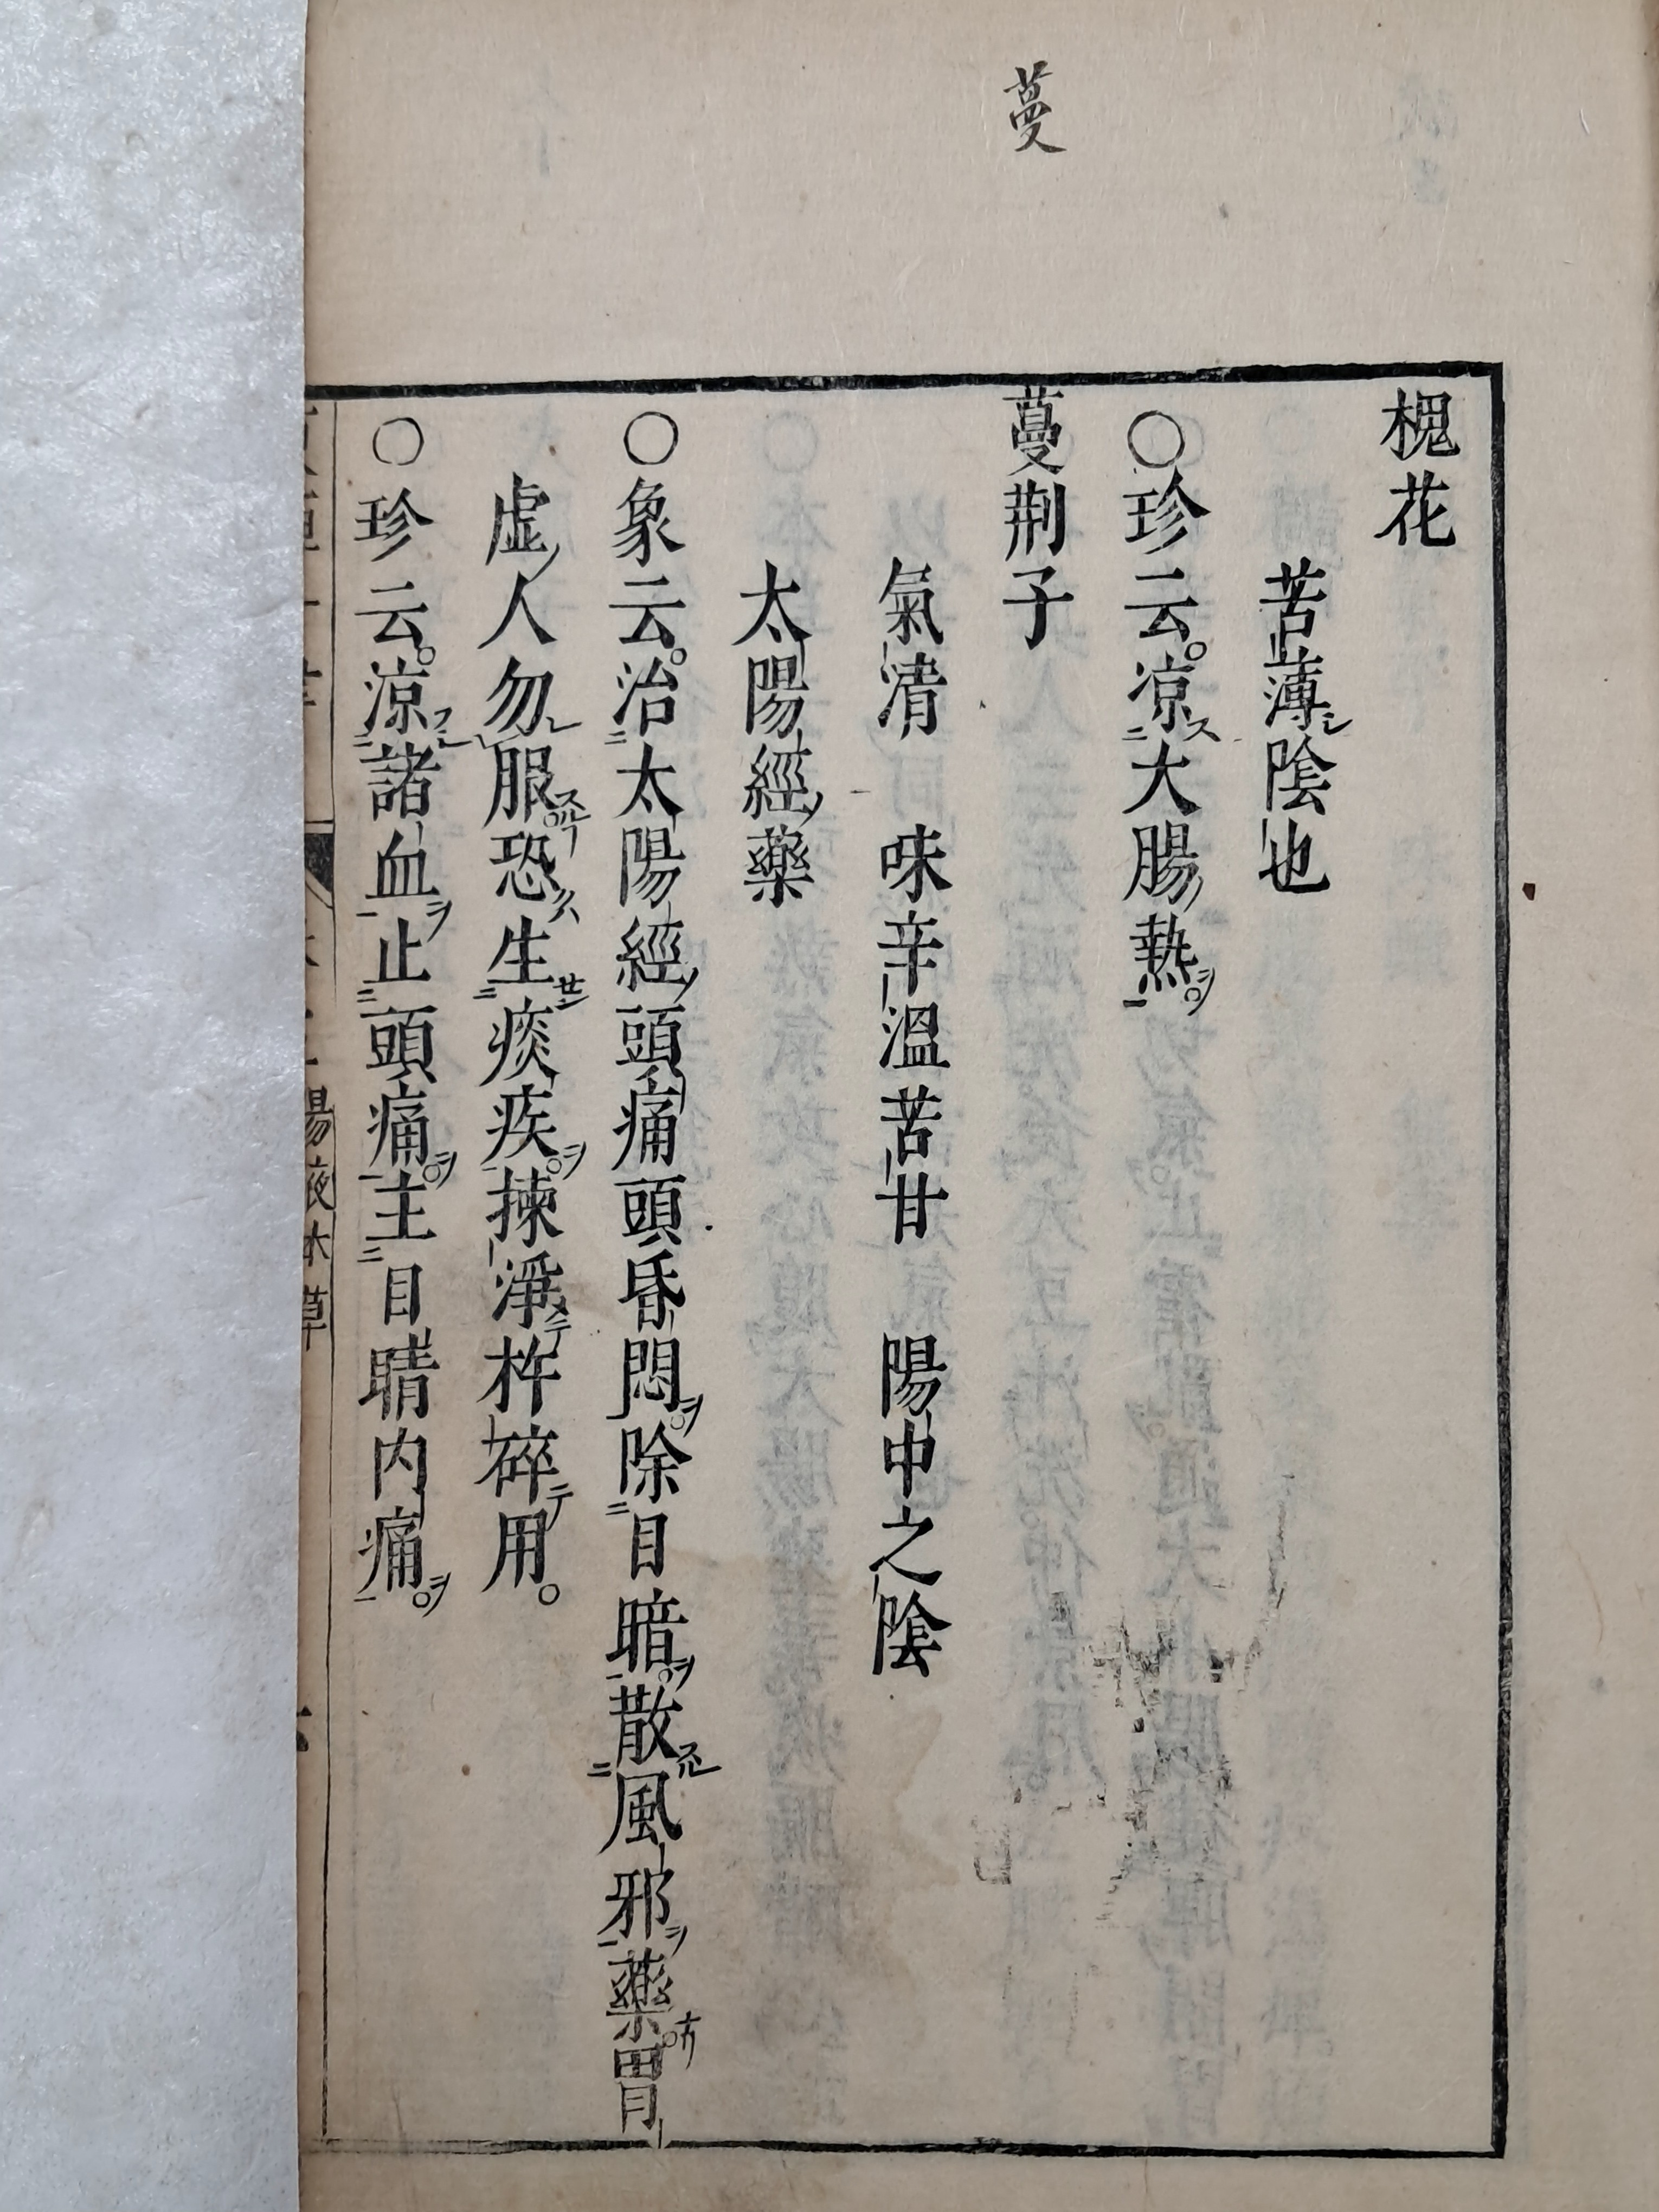 蔓
槐花
苦薄陰也
○珍云凉大腸熱
蔓荆子
氣清　味辛溫苦甘　陽中之陰
太陽經藥
○象云治太陽經頭痛頭昏悶除目暗散風邪藥胃
虛人勿服恐生痰疾揀淨杵碎用
○珍云凉諸血止頭痛主目睛内痛
湯液本草